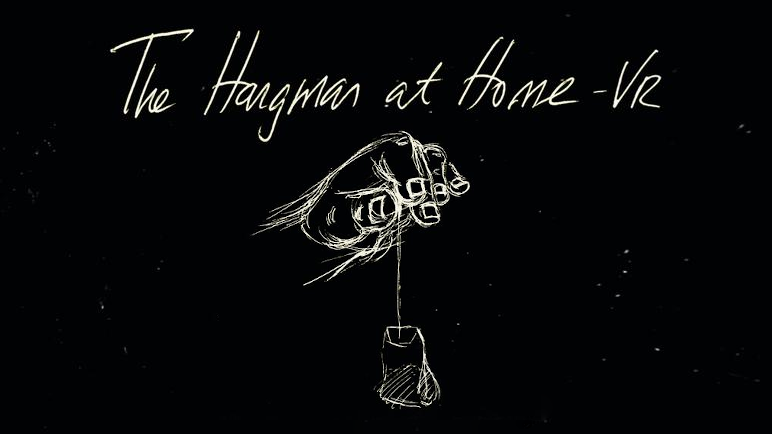 The Hangman at Home - VR